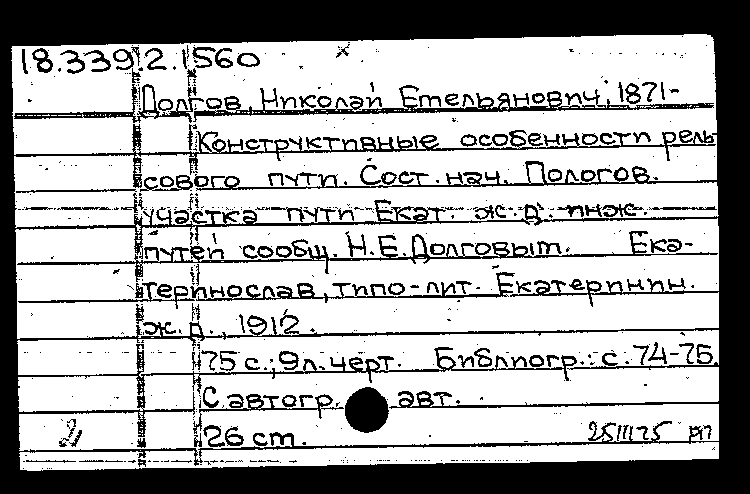 18.339.2.560
Долгов, Николай Емельянович, 1871-
Конструктивные особенности рель
сового пути. Сост. нач. Пологов.
участка пути Екат. ж. д. инж.
путей сообщ. Н.Е.Долговым. Ека-
теринослав, типо-лит. Екатеринин.
ж. д., 1912.
75 с.; 9 л. черт. Библиогр.: с. 74-75.
С автогр. авт.
26 cm.